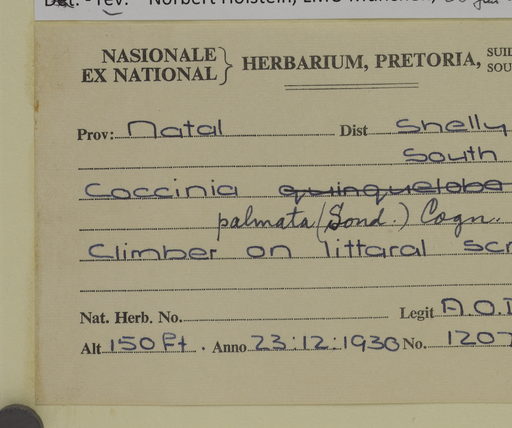 - rev. Norbert Holstein, LMU München,
NASIONALE EX NATIONAL } HERBARIUM, PRETORIA, SUID SOU
Prov: Natal Dist Shelly
South
Coccinia quinqueloba
palmata (Sond.) Cogn.
Climber on littaral scr
Nat. Herb. No. Legit A.O.D
Alt 150 ft. Anno 23:12:1930 No. 1207